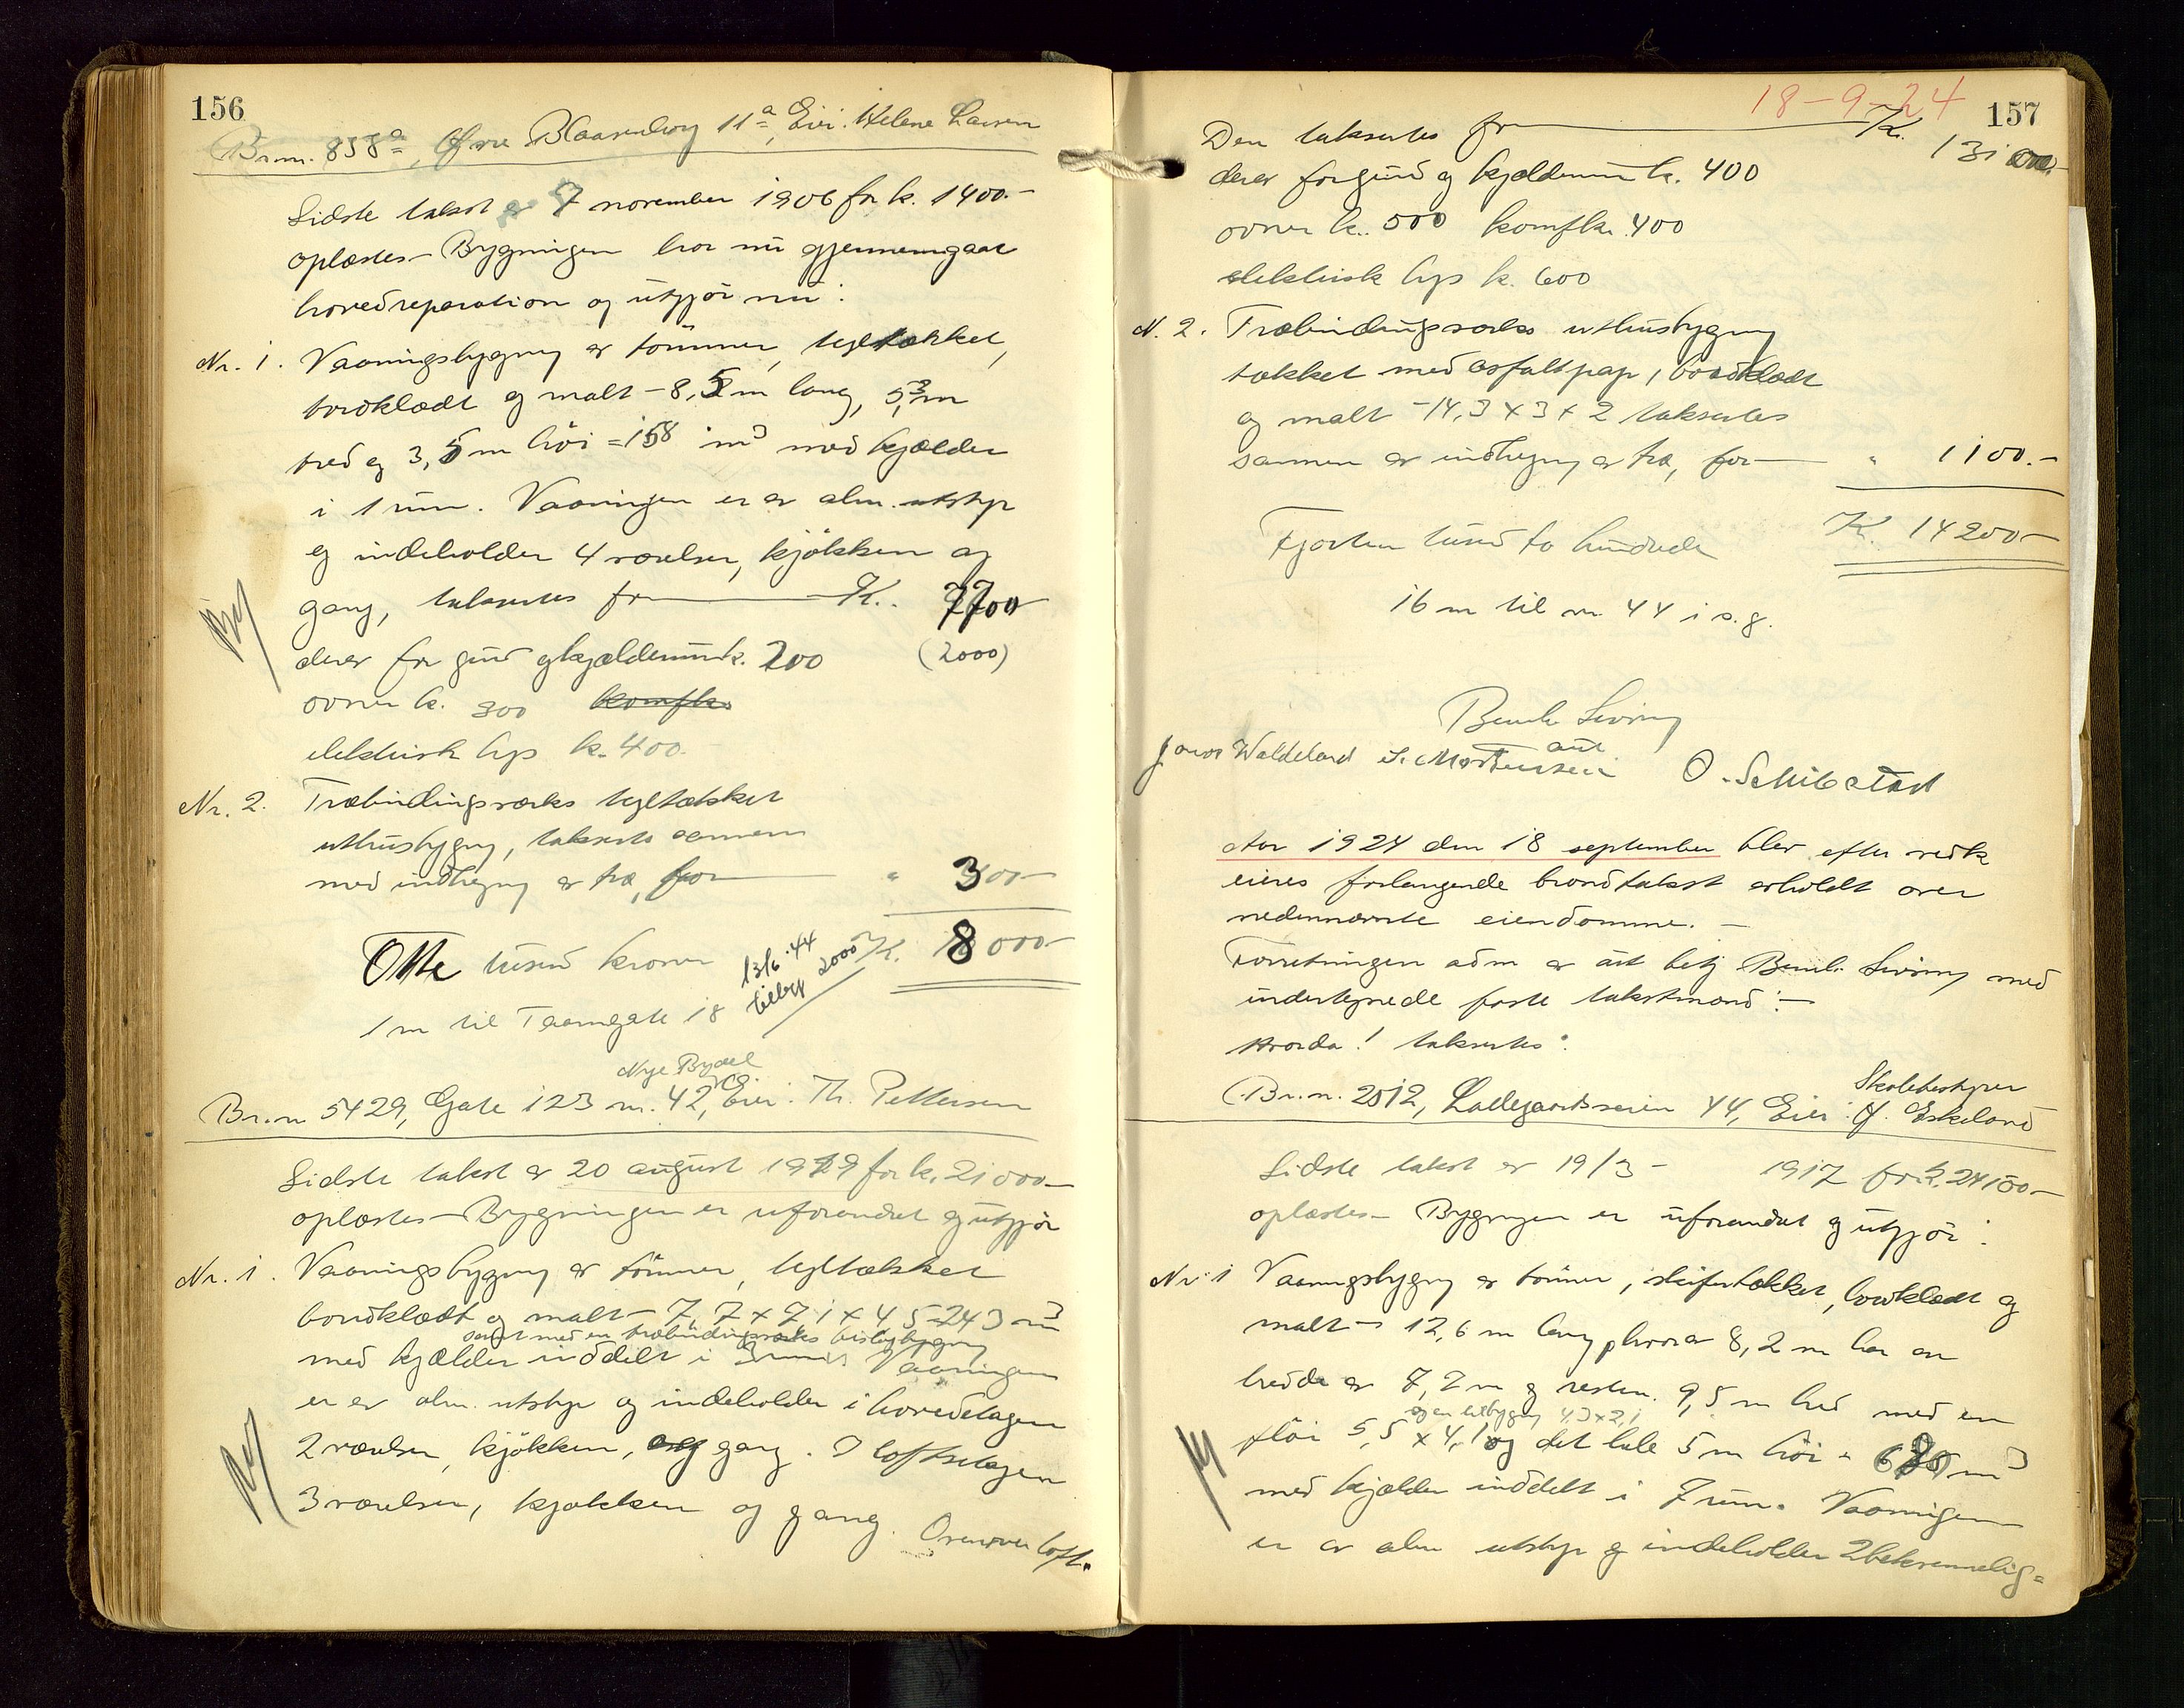 156
Br.nr. 858a, Øvre Blaasenborg 11a, Eier: Helene Larsen
Sidste takst av 7 november 1906 for k. 1400.-
oplæstes - Bygningen har nu gjennemgaat
hovedreparation og utgjør nu:
Nr. 1. Vaaningsbygning av tømmer, tegltækket,
bordklædt og malt - 8,5 m lang, 5,3 m
bred og 3,5 m høi = 158 m3 med kjælder
i 1 rum. Vaaningen er av alm. utstyr
og indeholder 4 værelser, kjøkken og
gang, takseres for K. 7700
derav for grund og kjælderrum k. 200 (2000)
ovner k. 300 komfk.
elektrisk lys k. 400.
Nr. 2. Træbindingsverks tegltækket
uthusbygning, takseres sammen
med indhegning av træ, for " 300.-
Otte tusind kroner K. 8000.-
13/6.44
tilbygg 2000
1 m til Taarngate 18
Nye Bydel
Br.n 5429, Gate 123 nr. 42, Eier: Th. Pettersen
Sidste takst av 20 august 1919 for k. 21000.-
oplæstes - Bygningen er uforandret og utgjør
Nr. 1. Vaaningsbygning av tømmer, tegltækket
bordklædt og malt - 7,7 x 7,1 x 4,5 = 243 m3
samt med en træbindingsverks bislagbygning
med kjælder inddelt i 3 rum. Vaaningen
er av alm. utstyr og indeholder i hovedetagen
2 værelser, kjøkken, og gang. I loftsetagen
3 værelser, kjøkken og gang. Ovenover loft.
18-9-24
157
Den takseres for K. 13100.-
derav for grund og kjælderrum k. 400
ovner k. 500 komfk. 400
elektrisk lys k. 600
N. 2. Træbindingsverks uthusbygning
tækket med asfaltpap, bordklædt
og malt - 14,3 x 3 x 2 takseres
sammen av indhegning av træ, for " 1100.-
Fjorten tusind to hundrede K. 14200.-
16 m til nr 44 i s.g.
Bernh. Sviing
aut
Jonas Waldeland S. Mortensen O. Schibstad
Aar 1924 den 18 september blev efter vedk
eieres forlangende brandtakst avholdt over
nedennævnte eiendomme. -
Forretningen adm av aut betj Bernh. Sviing med
undertegnede faste takstmænd: -
Hvorda! takseres:
Skolebestyrer
Br.n. 2512, Ladegaardsveien 44, Eier: G. Eskeland
Sidste takst av 19/3 - 1917 for k. 24100.-
oplæstes - Bygningen er uforandret og utgjør:
Nr. 1 Vaaningsbygning av tømmer, skifertækket, bordklædt og
malt - 12,6 m lang, hvorav 8,2 m har en
bredde av 7,2 m og resten 9,5 m bred med en
og en tilbygning 4,3 x 2,1
fløi 5,5 x 4,1 og det hele 5 m høi = 635 m3
med kjælder inddelt i 7 rum. Vaaningen
er av alm utstyr og indeholder 2 bekvemmelig=